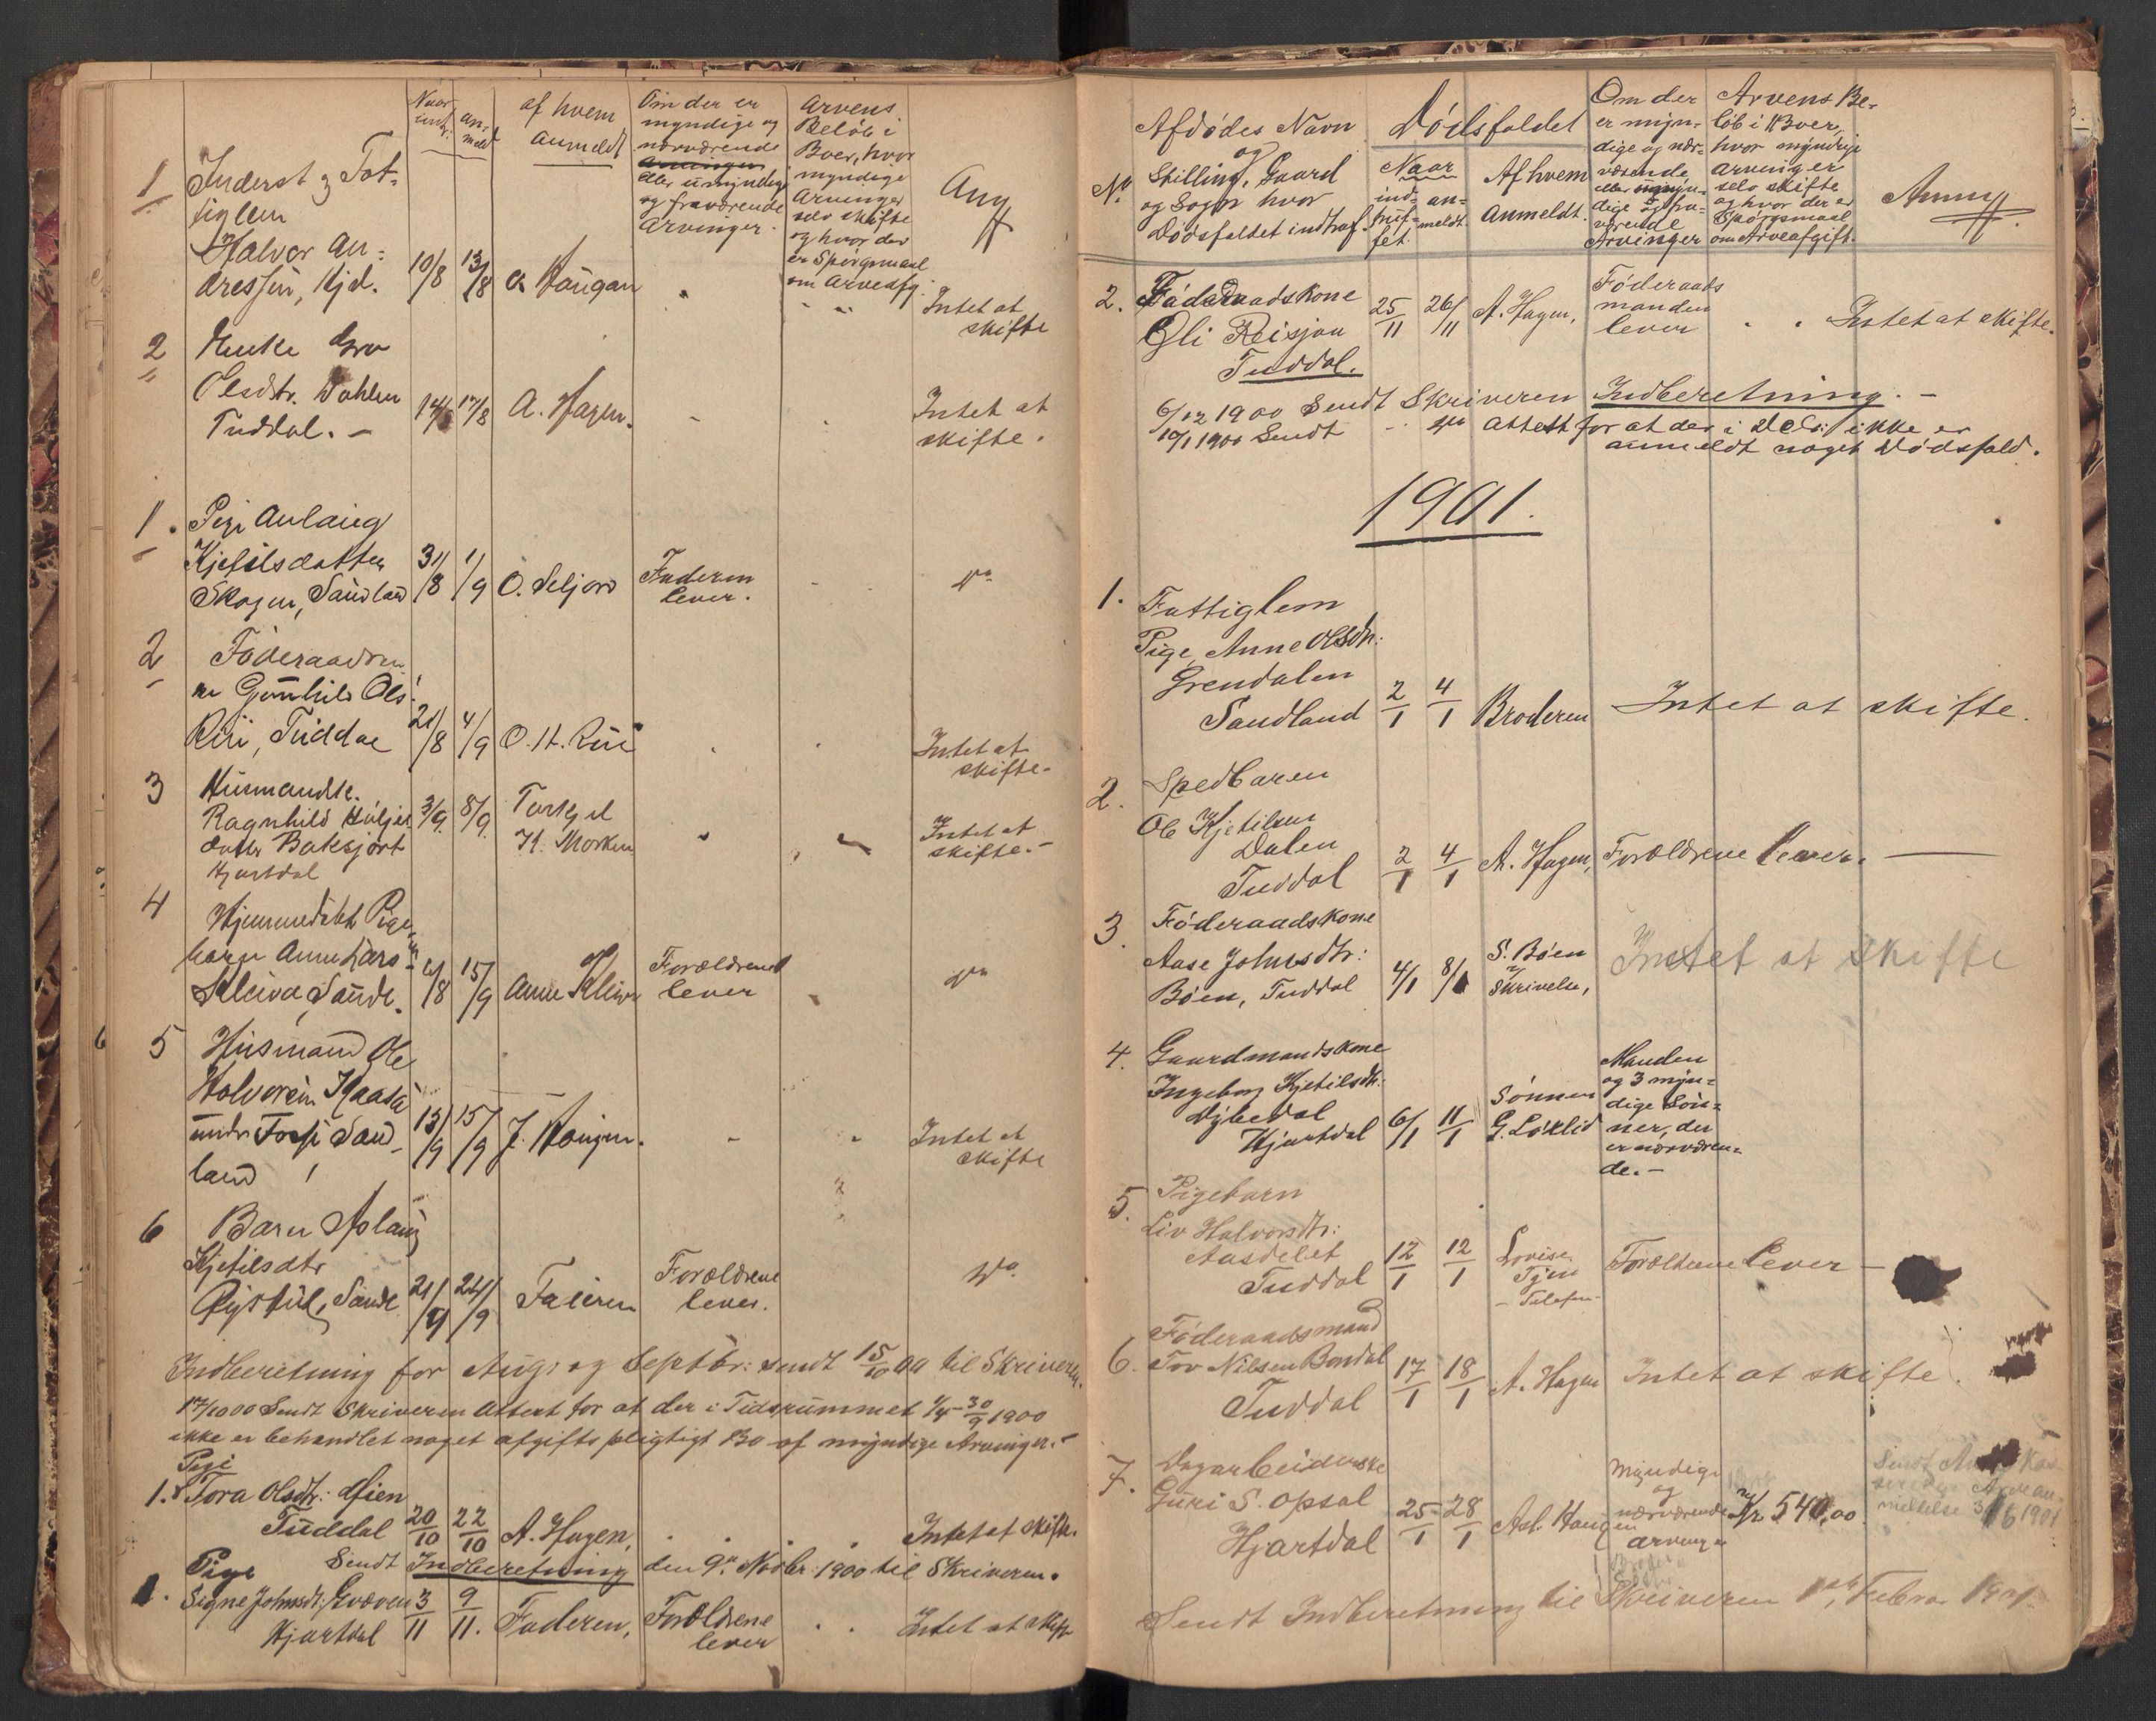 Naar an-
indtr: meldt
af hvem
anmeldt
Om der er
myndige og
nærværende
Arvinger
eller umyndige
og fraværende
Arvinger.
Arvens
Beløb i
Boer, hvor
myndige
Arvinger
selv skifte
og hvor der
er Spørgsmaal
om Arveafg.
Anm
1 Inderst og Fat-
tiglem
Halvor An-
dresen, Hjd. 10/8 13/8 A Haugan " - - Intet at
skifte
2 Enke
Olsdtr. Dahlen
Tuddal. - 14/8 17/8 A. Hagen. - . Intet at
skifte.
1. Pige Aulaug
Kjetilsdatter
Skogen, Sauland 31/8 1/9 O. Seljord Faderen
lever. - Do
2 Føderaadsen-
ke Gunhild Ols:
Rui, Tuddal 21/8 4/9 O. H. Rui . . Intet at
skifte-
3 Husmandsk.
Ragnhild
datter Baksjort 3/9 8/9 Torkjel
K. Morken " - Intet at
skifte.-
Hjartdal
4 Hjemmedøbt Pige-
barn Anne Lars-
Kleiva, Saude. /8 15/9 Anne Kleiva Forældrene
lever - Do
5 Husmand Ole
Halvorsen Kaasa
under Forsj Sau-
land 13/9 15/9 J. Haugen. - - Intet at
skifte
6 Barn Aslaug
Kjetilsdtr
Rystul, Saude 21/9 24/9 Faderen Forældrene
lever. Do.
Indberetning for Aug. og Septbr: sendt 15/10 00 til Skriveren.
17/10 00 Sendt Skriveren Attest for at der i Tidsrummet 1/4-30/9 1900
ikke er behandlet noget afgiftspligtigt Bo af myndige Arvinger.-
Pige
1. Tora Olsdtr: Øien
Tuddal 20/10 22/10 A. Hagen, . . . Intet at skifte.
Sendt Indberetning den 9de Novbr: 1900 til Skriveren.
Pige
1. Signe Johnsdt: Gvæven
Hjartdal 3/11 9/11. Faderen, Forældrene
lever . . Intet at skifte
No.
Afdødes Navn
og
Stilling, Gaard
og Sogn hvor
Dødsfaldet indtraf.
Dødsfaldet
Naar
ind- an-
truf- meldt
fet.
Af hvem
anmeldt.
Om der
er myn-
dige og nær-
værende
eller umyn-
dige og fra-
værende
Arvinger
Arvens Be-
løb i Boer,
hvor myndige
Arvinger
selv skifte
og hvor der er
Spørgsmaal
om Arveafgift.
Anm.
2. Føderaadskone
Gli Reisjaa
Tuddal. 25/11 26/11 A. Hagen, Føderaads
manden
lever . . Intet at skifte.
6/12 1900 Sendt Skriveren Indberetning. -
10/1 1900 Sendt - Attest for at der i Dcb: ikke er
anmeldt noget Dødsfald.
1901.
1. Fattiglem
Pige, Anne Olsdtr:
Grendalen
Saudland 2/1 4/1 Broderen Intet at skifte.
2. Spedbaren
Ole Kjetilsen
Dalen
Tuddal 2/1 4/1 A. Hagen, Forældrene lever. -
3. Føderaadskone
Aase Johnsdtr:
Bøen, Tuddal 4/1 8/1 S. Bøen
Skrivelse, Intet at skifte
4. Gaardmandskone
Ingeborg Kjetilsdtr:
Dybedal
Hjartdal 6/1 11/1 Sønnen
G. Løklid Manden
og 3 myn-
dige Søn-
ner, der
er nærværen-
de.-
5. Pigebarn
Liv Halvorsdtr:
Aasdelet
Tuddal 12/1 12/1 Lovise
- Telefon- Forældrene lever -
6. Føderaadsmand
Tov Nilsen Bondal
Tuddal 17/1 18/1 A. Hagen Intet at skifte.
7. Dagarbeiderske
Guri S. Opsal
Hjartdal 25/1 28/1 Asl. Haugen Myndige
og
nærværende
Arvinger Kr. 540,00 Sendt
meldelse 3/6 1901
Sendt Indberetning til Skriveren 1ste Febru. 1901.